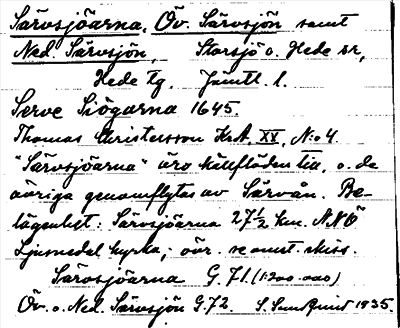 Särvsjöarna, Öv. Särvsjön samt
Ned. Särvsjön, Storsjö o. Hede sr,
Hede tg. Jämtl. l.
Serve Siögarna 1645.
Thomas Christersson KrA, XX, N:o 4.
"Särvsjöarna" äro källflöden till, o. de
övriga genomflytas av Särvån. Be-
lägenhet: Särvsjöarna 27½ km. NNÖ
Ljusnedal kyrka,- övr. se omst. skiss.
Särvsjöarna G. 71. (1:200-000)
Öv. o. Ned. Särvsjön G. 72. S. Sundquist 1935.